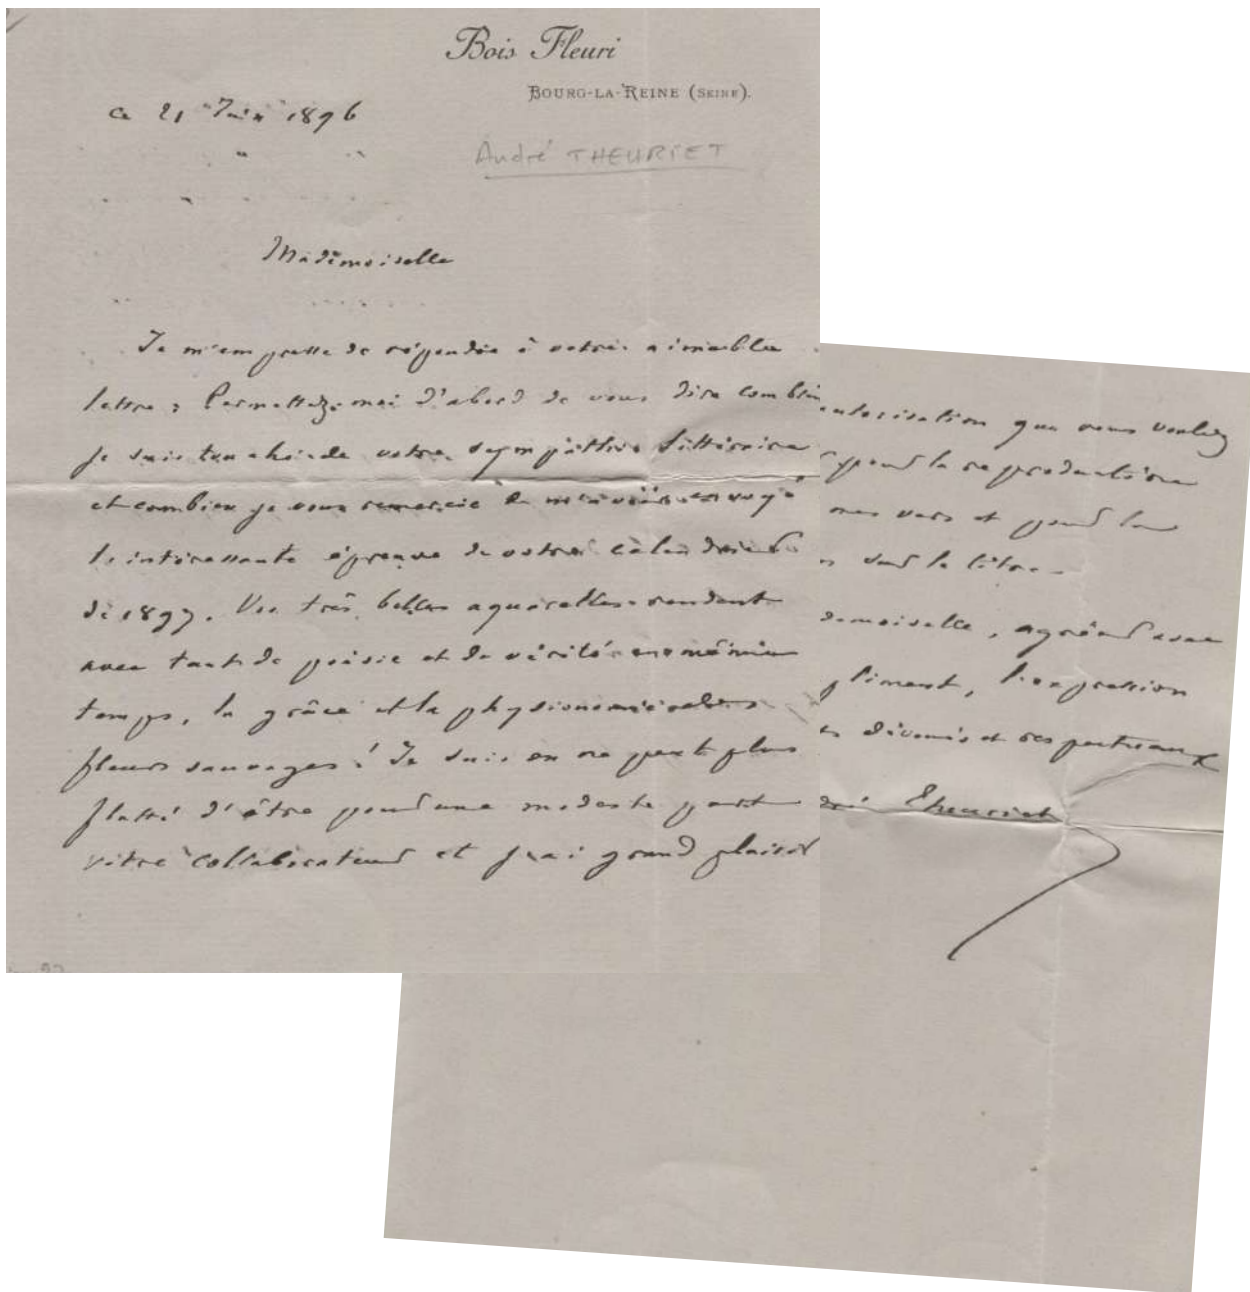 Bois Fleuri
BOURG-LA-REINE (SEINE).
ce 21 Juin 1896
André THEURIET
Mademoiselle
Je m'empresse de répondre à votre aimable
lettre ; Permettez-moi d'abord de vous dire combien
je suis touché de votre sympathie littéraire
et combien je vous remercie de m'avoir envoyé
l'intéressante épreuve de votre calendrier
de 1897. Vos très belles aquarelles rendent
avec tant de poésie et de vérité en même
temps, la grâce et la physionomie des
fleurs sauvages ! Je suis on ne peut plus
flatté d'être pour une modeste part
votre collaborateur et j'ai grand plaisir
autorisation que vous voulez
pour la reproduction
mes vers et pour
sur le titre.
demoiselle, agréer avec
pliment, l'expression
dévoués et respectueux
dré Theuriet